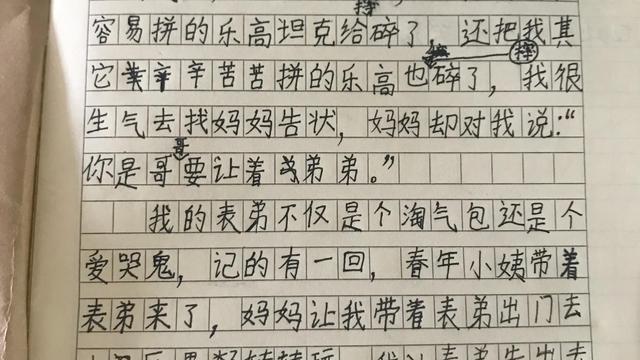 容易拼的乐高坦克给摔碎了，还把我其
它辛辛苦苦拼的乐高也摔碎了，我很
生气去找妈妈告状，妈妈却对我说：“
你是哥哥要让着弟弟。”
我的表弟不仅是个淘气包还是个
爱哭鬼，记的有一回，春年小姨带着
表弟来了，妈妈让我带着表弟出门去